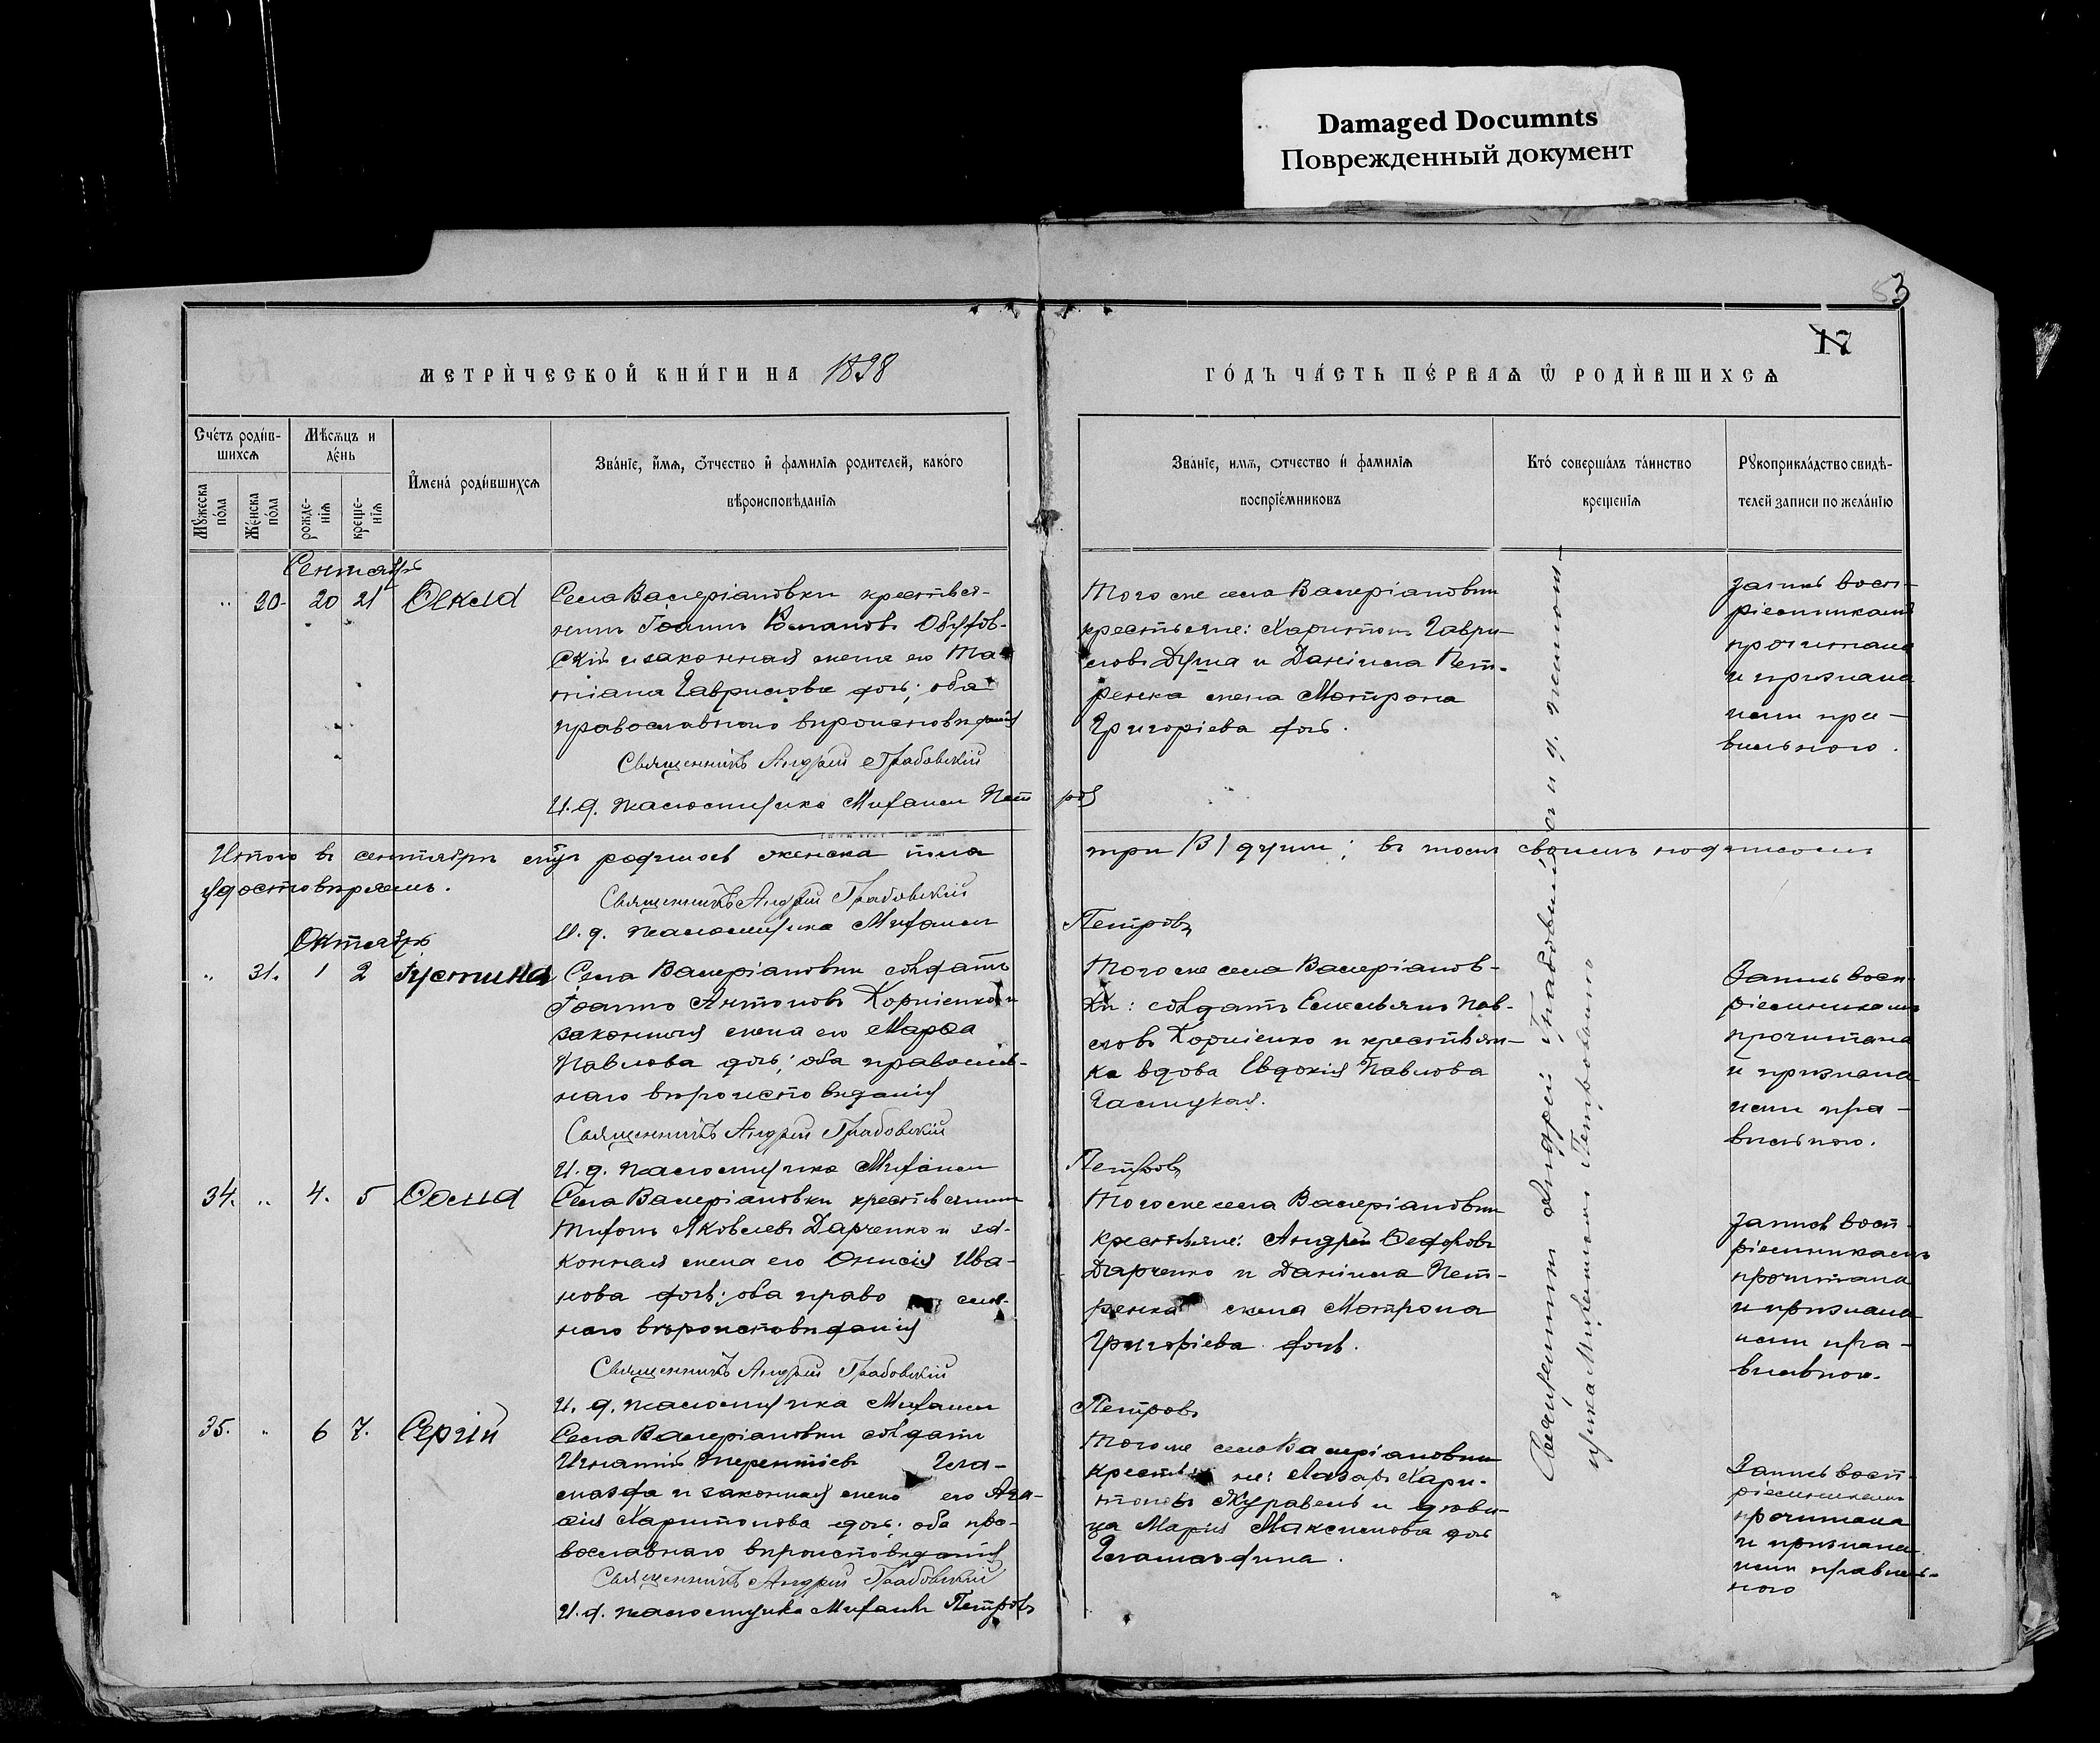 Damaged Documnts
Поврежденный документ
53
17
МЕТРИ́ЧЕСКОЙ КНИ́ГИ НА 1898
ГО́ДЪ ЧА́СТЬ ПЕ́РВАѦ Ѡ҆ РОДИ́ВШИХСѦ
Сче́тъ роди́в-
шихсѧ
Мѣ́сѧцъ и
де́нь
Мꙋжеска
по́ла
Же́нска
по́ла
рожде-
нїѧ
креще-
нїѧ
И҆мена̀ роди́вшихсѧ
Зва́нїе, и҆́мѧ, ѻ҆́тчество и҆ фамилїѧ родителей, како́го
вѣроисповѣ́данїѧ
Зва́нїе, имѧ, ѻтчество и҆ фамилїѧ
воспрїе́мниковъ
Кто̀ соверша́лъ та́инство
креще́нїѧ
Рꙋкоприкла́дство свидѣ́-
телей записи по жела́нїю
Сентябрь
" 30. 20 21 Ѳекла
Села Валеріановки крестья-
нинъ Іоаннъ Романовъ
скій и законная жена его Та-
тіана Гаврилова дочь; оба
православнаго вѣроисповѣданія
Священникъ Андрей Грабовскій
И. д. псаломщика Михаилъ Петровъ
Того же села Валеріановки
крестьяне: Харитонъ Гаври-
ловъ Душа и Даніила Пет-
ренка жена Матрона
Григоріева дочь.
Запись восп-
ріемникамъ
прочитана
и признана
ими пра-
вильною.
Итого въ сентябрѣ родилось женска пола
три /3/ души; въ томъ своимъ подписомъ
удостовѣряемъ.
Священникъ Андрей Грабовскій
И. д. псаломщика Михаилъ Петровъ
Октябрь
" 31. 1 2 Іустина
Села Валеріановки солдатъ
Іоаннъ Антоновъ Корніенко и
законная жена его Марѳа
Павлова дочь; оба православ-
наго вѣроисповѣданія
Священникъ Андрей Грабовскій
И. д. псаломщика Михаилъ Петровъ
Того же села Валеріанов-
ки: солдатъ Емельянъ Пав-
ловъ Корніенко и крестьян-
ка вдова Евдокія Павлова
Запись восп-
ріемникамъ
прочитана
и признана
ими пра-
вильною.
34. " 4. 5
Села Валеріановки крестьянинъ
Тихонъ Яковлевъ Дарченко и за-
конная жена его Онисія Ива-
нова дочь; оба православ-
наго вѣроисповѣданія
Священникъ Андрей Грабовскій
И. д. псаломщика Михаилъ Петровъ
Того же села Валеріановки
крестьяне: Андрей Ѳедоровъ
Дарченко и Даніила Пет-
ренка жена Матрона
Григоріева дочь.
Запись восп-
ріемникамъ
прочитана
и признана
ими пра-
вильною.
35. " 6 7. Сергій
Села Валеріановки солдатъ
Игнатій Терентіевъ
и законная жена его Ага-
ѳія Харитонова дочь; оба пра-
вославнаго вѣроисповѣданія
Священникъ Андрей Грабовскій
И. д. псаломщика Михаилъ Петровъ
Того же села Валеріановки
крестьяне: Лазарь Хари-
тоновъ Журавель и дѣви-
ца Марія Максимова дочь
Запись восп-
ріемникамъ
прочитана
и признана
ими правиль-
ною
Священникъ Андрей Грабовскій и и. д. псалом-
щика Михаилъ Петровъ